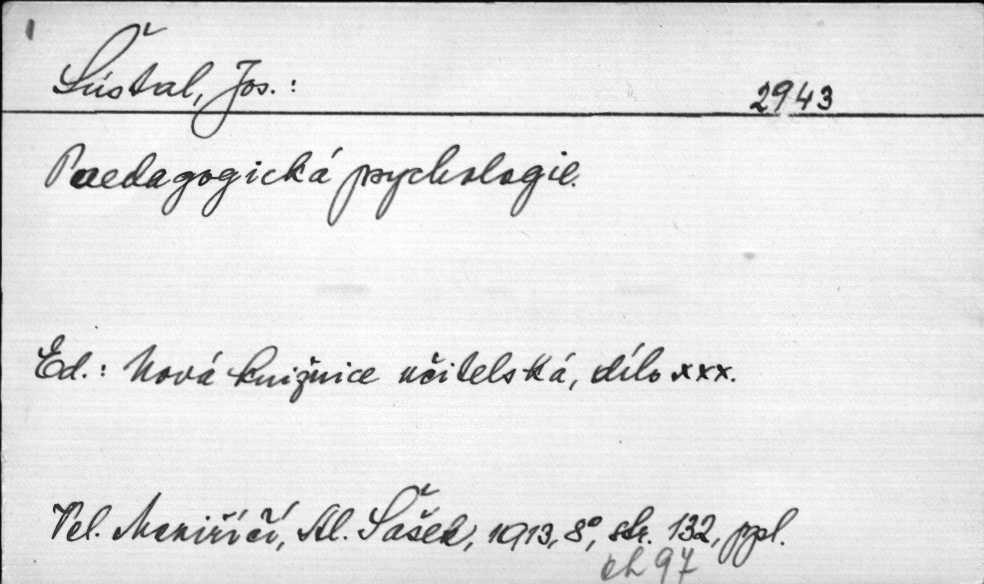 Šústal, Jos.:
2943
Paedagogická psychologie.
Ed.: Nová knižnice učitelská, dílo xxx.
Vel. Meziříčí, Al. Šašek, 1913, 8°, str. 132, ppl.
ch 97